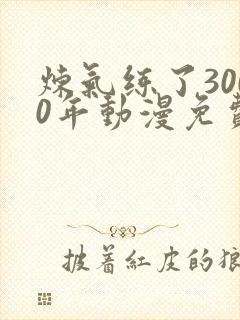 炼氣练了300
0年動漫免費
披着紅皮的狼